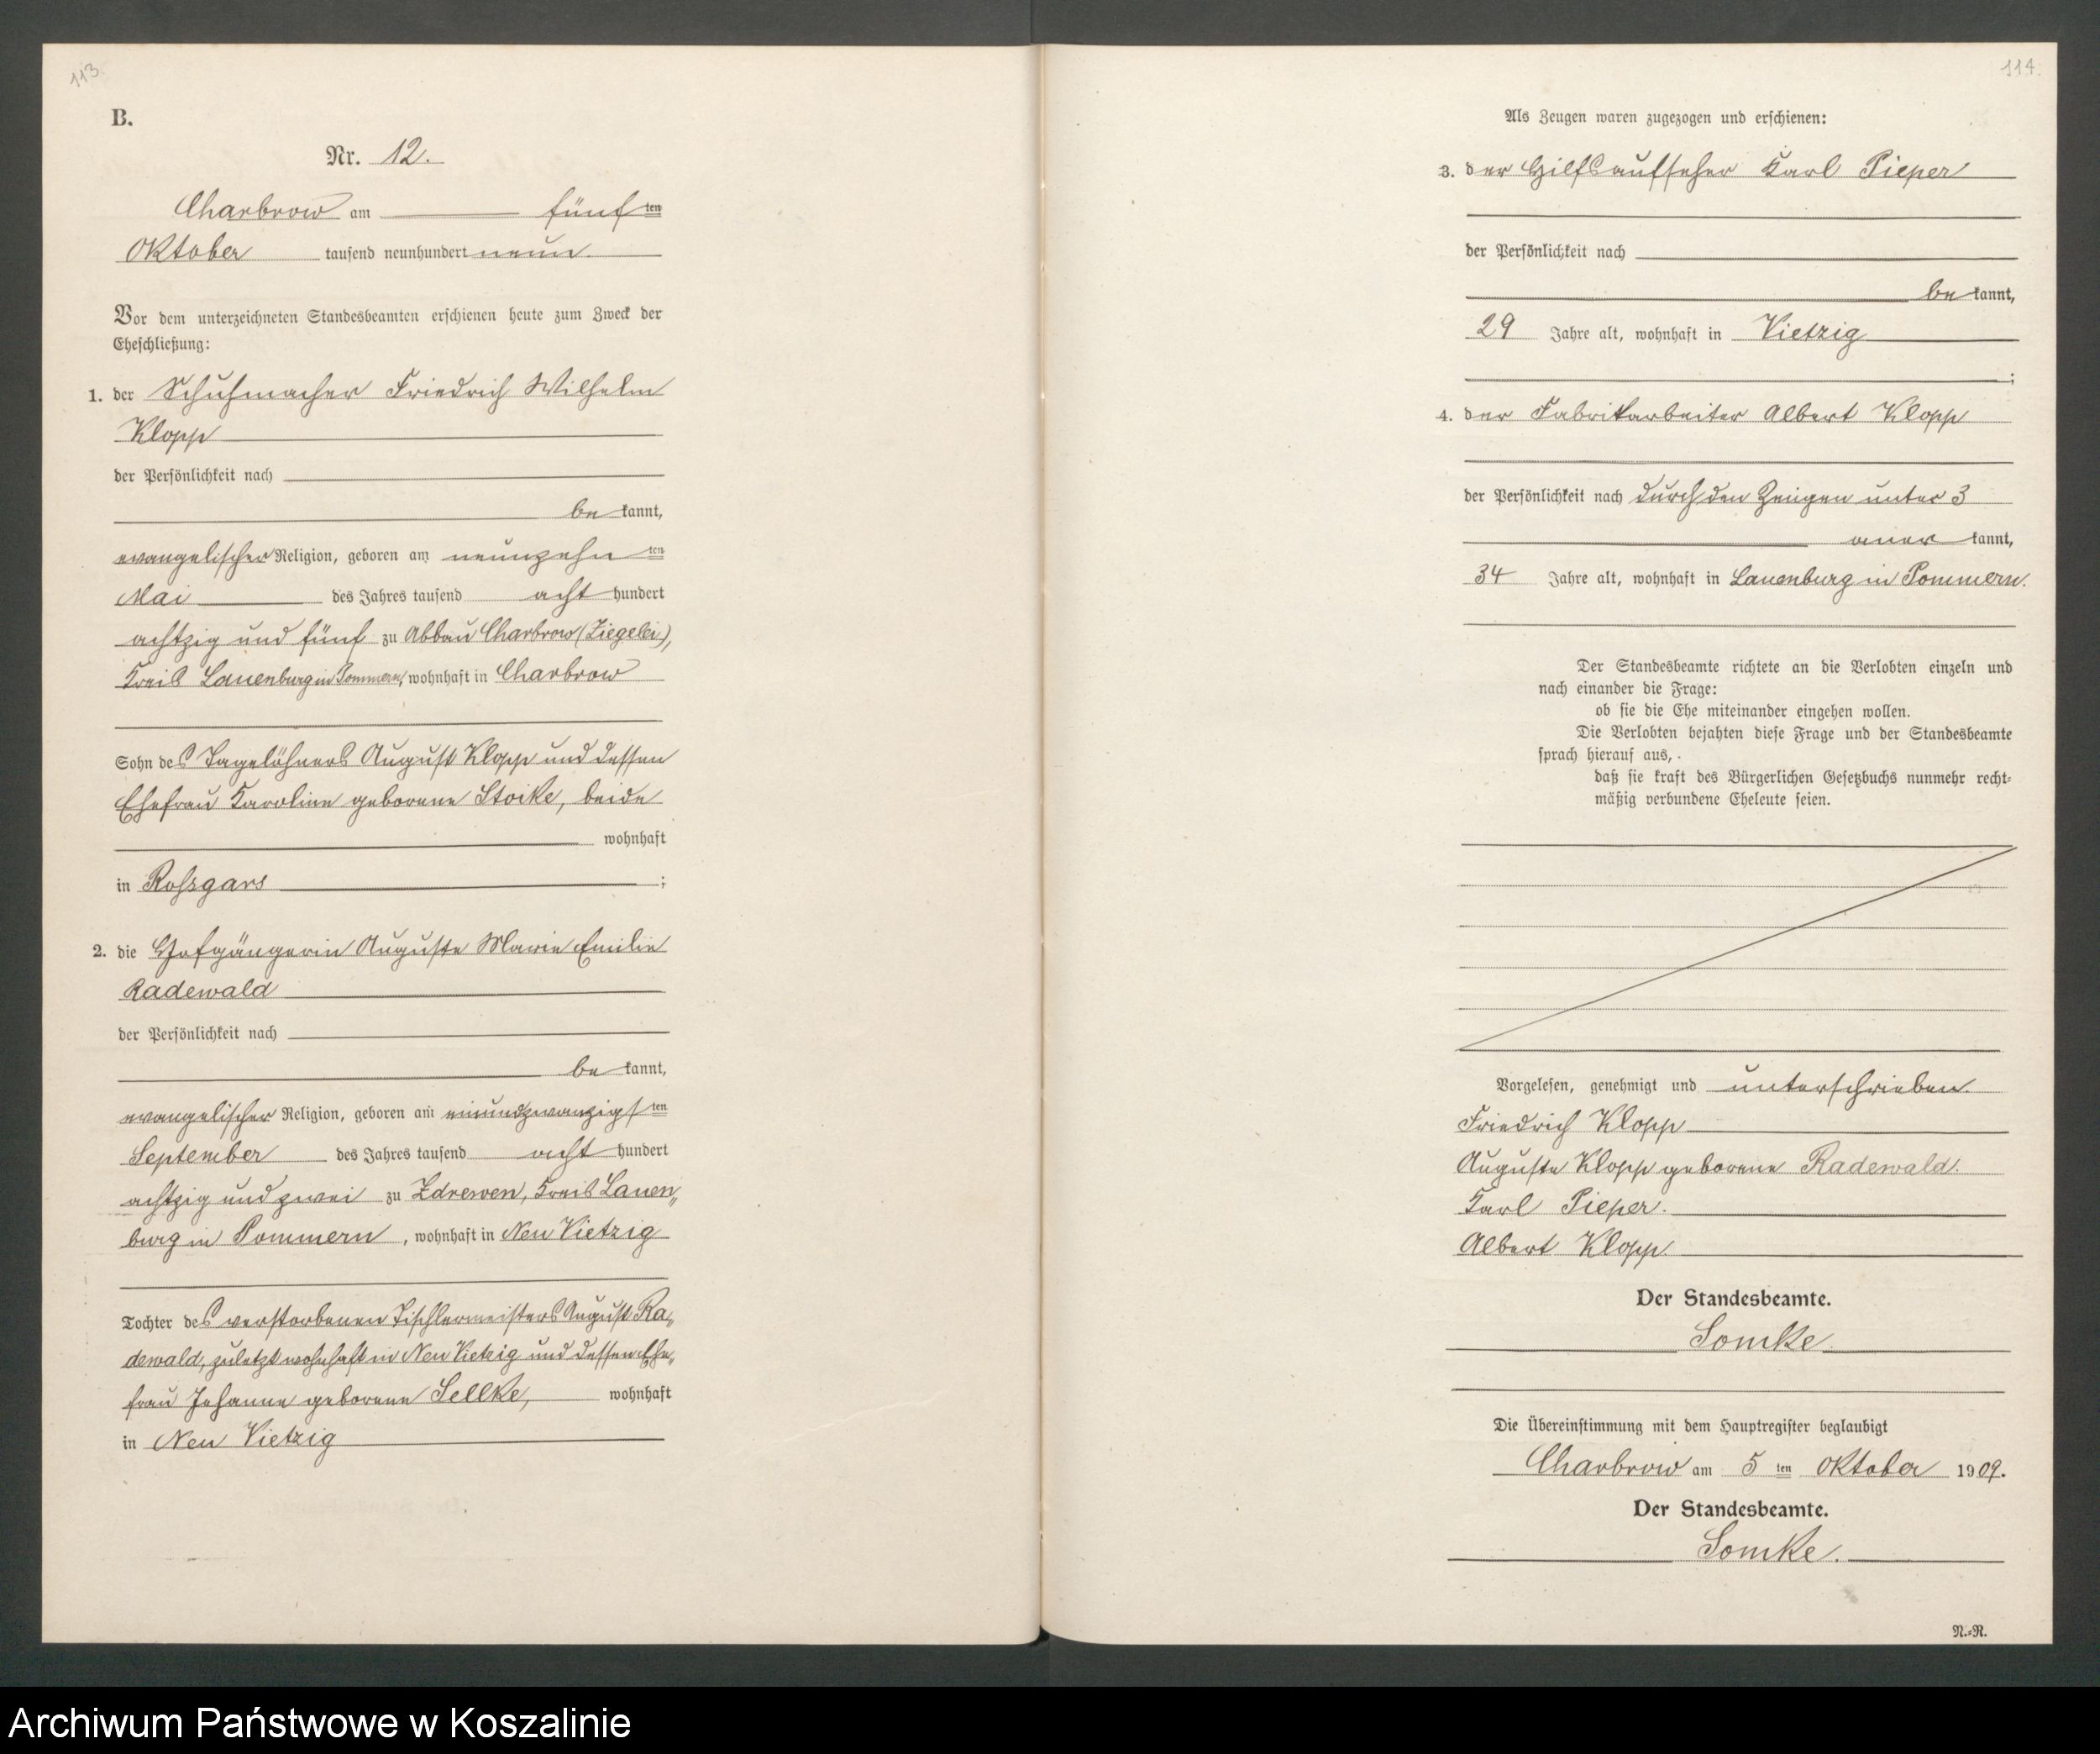 113.
B.
Nr. 12.
Charbrow am fünf ten
Oktober tausend neunhundert neun.
Vor dem unterzeichneten Standesbeamten erschienen heute zum Zweck der
Eheschließung:
1. der Schuhmacher Friedrich Wilhelm
Klopp
der Persönlichkeit nach
be kannt,
evangelischer Religion, geboren am neunzehn ten
Mai des Jahres tausend acht hundert
achtzig und fünf zu Abbau Charbrow (Ziegelei),
Kreis Lauenburg in Pommern, wohnhaft in Charbrow
Sohn des Tagelöhners August Klopp und dessen
Ehefrau Karoline geborene Stoike, beide
wohnhaft
in Rohsgars ;
2. die Hofgängerin Auguste Marie Emilie
Radewald
der Persönlichkeit nach
be kannt,
evangelischer Religion, geboren am einundzwanzigs ten
September des Jahres tausend acht hundert
achtzig und zwei zu Zdrewen, Kreis Lauen„
burg in Pommern, wohnhaft in Neu Vietzig
Tochter des verstorbenen Tischlermeisters August Ra„
dewald, zuletzt wohnhaft in Neu Vietzig und dessen Ehe„
frau Johanne geborene Sellke, wohnhaft
in Neu Vietzig
114.
Als Zeugen waren zugezogen und erschienen:
3. der Hilfsaufseher Karl Pieper
der Persönlichkeit nach
be kannt,
29 Jahre alt, wohnhaft in Vietzig
;
4. der Fabrikarbeiter Albert Klopp
der Persönlichkeit nach durch den Zeugen unter 3
aner kannt,
34 Jahre alt, wohnhaft in Lauenburg in Pommern.
Der Standesbeamte richtete an die Verlobten einzeln und
nach einander die Frage:
ob sie die Ehe miteinander eingehen wollen.
Die Verlobten bejahten diese Frage und der Standesbeamte
sprach hierauf aus,
daß sie kraft des Bürgerlichen Gesetzbuchs nunmehr recht-
mäßig verbundene Eheleute seien.
Vorgelesen, genehmigt und unterschrieben.
Friedrich Klopp
Auguste Klopp geborene Radewald.
Karl Pieper.
Albert Klopp.
Der Standesbeamte.
Somke.
Die Übereinstimmung mit dem Hauptregister beglaubigt
Charbrow am 5 ten Oktober 1909.
Der Standesbeamte.
Somke.
N.-R.
Archiwum Państwowe w Koszalinie